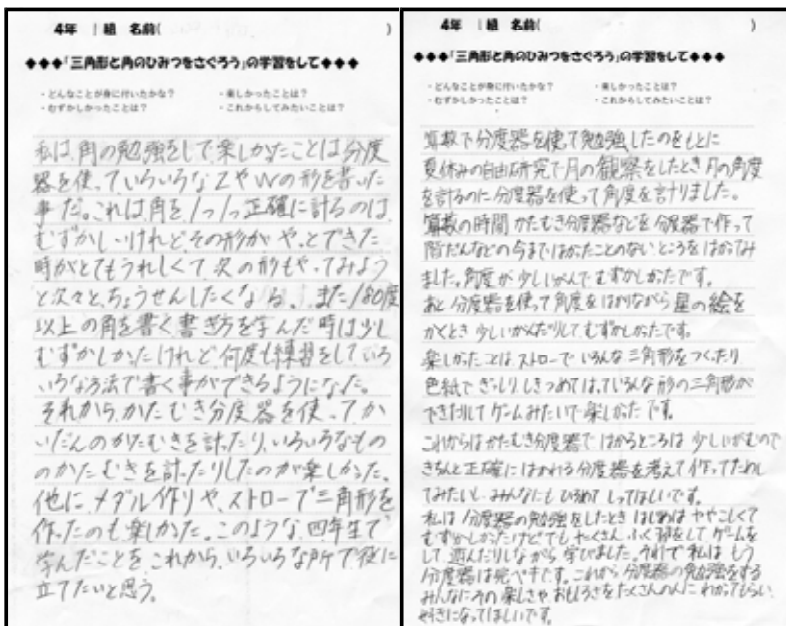 4年 1組 名前( )
◆◆◆「三角形と角のひみつをさぐろう」の学習をして◆◆◆
・どんなことが身に付いたかな? ・楽しかったことは?
・むずかしかったことは? ・これからしてみたいことは?
私は、角の勉強をして、楽しかったことは分度
器を使っていろいろなZやWの形を書いた
事だ。これは角を1つ1つ正確に計るのは、
むずかしいけれど、その形が、やっとできた
時がとてもうれしくて次の形もやってみよう
と次々と、ちょうせんしたくなる。また180度
以上の角を書く書き方を学んだ時は少し
むずかしかったけれど、何度も練習をしていろ
いろな方法で書く事ができるようになった。
それから、かたむき分度器を使って、か
いだんのかたむきを計ったり、いろいろなもの
のかたむきを計ったりしたのが楽しかった。
他に、メダル作りや、ストローで三角形を
作ったのも楽しかった。このような、四年生で
学んだことを、これから、いろいろな所で役に
立てたいと思う。
4年 1組 名前( )
◆◆◆「三角形と角のひみつをさぐろう」の学習をして◆◆◆
・どんなことが身に付いたかな? ・楽しかったことは?
・むずかしかったことは? ・これからしてみたいことは?
算数で分度器を使って勉強したのをもとに
夏休みの自由研究で月の観察をしたとき月の角度
を計るのに分度器を使って角度を計りました。
算数の時間かたむき分度器などを分度器で作って
階だんなどの今まではかったことのないところをはかってみ
ました。角度が少しいがんでむずかしかったです。
あと分度器を使って角度をはかりながら星の絵を
かくとき少しいがんだりしてむずかしかったです。
楽しかったことは、ストローでいろんな三角形をつくったり
色紙でぎっしりしきつめてはっていろんな形の三角形が
できたりしてゲームみたいで楽しかったです。
これからはかたむき分度器ではかるところは少しいがむので
きちんと正確にはかれる分度器を考えて作ってためし
てみたいし、みんなにもひろめてしってほしいです。
私は分度器の勉強をしたときはじめはややこしくて
むずかしかったけどでもたくさんふく習をしてゲームを
して遊んだりしながら学びました。それで私はもう
分度器は完ぺきです。これから分度器の勉強をする
みんなにその楽しさやおもしろさをたくさんの人にわかってもらい
好きになってほしいです。